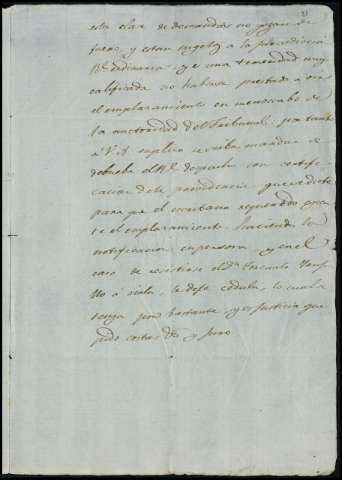 esta clase de demandas no gozan de
fuero, y estan sugetos a la jurisdiccion
Rl. ordinaria, y es una temeridad muy
calificada no haberse prestado a oir
el emplazamiento en menoscabo de
la autoridad del Tribunal: por tanto
á V.A. suplico se sirba mandar se
debuelba el Rl. despacho con certifi-
cacion de la providencia que se dicte
para que el escribano requerido prac-
te el emplazamiento, haciendo la
notificacion en persona, y en el
caso de resistirse el dn.
llo á oirla, le deje cedula, la cual
tenga por bastante, pr. ser justicia que
pido costas &a. y juro